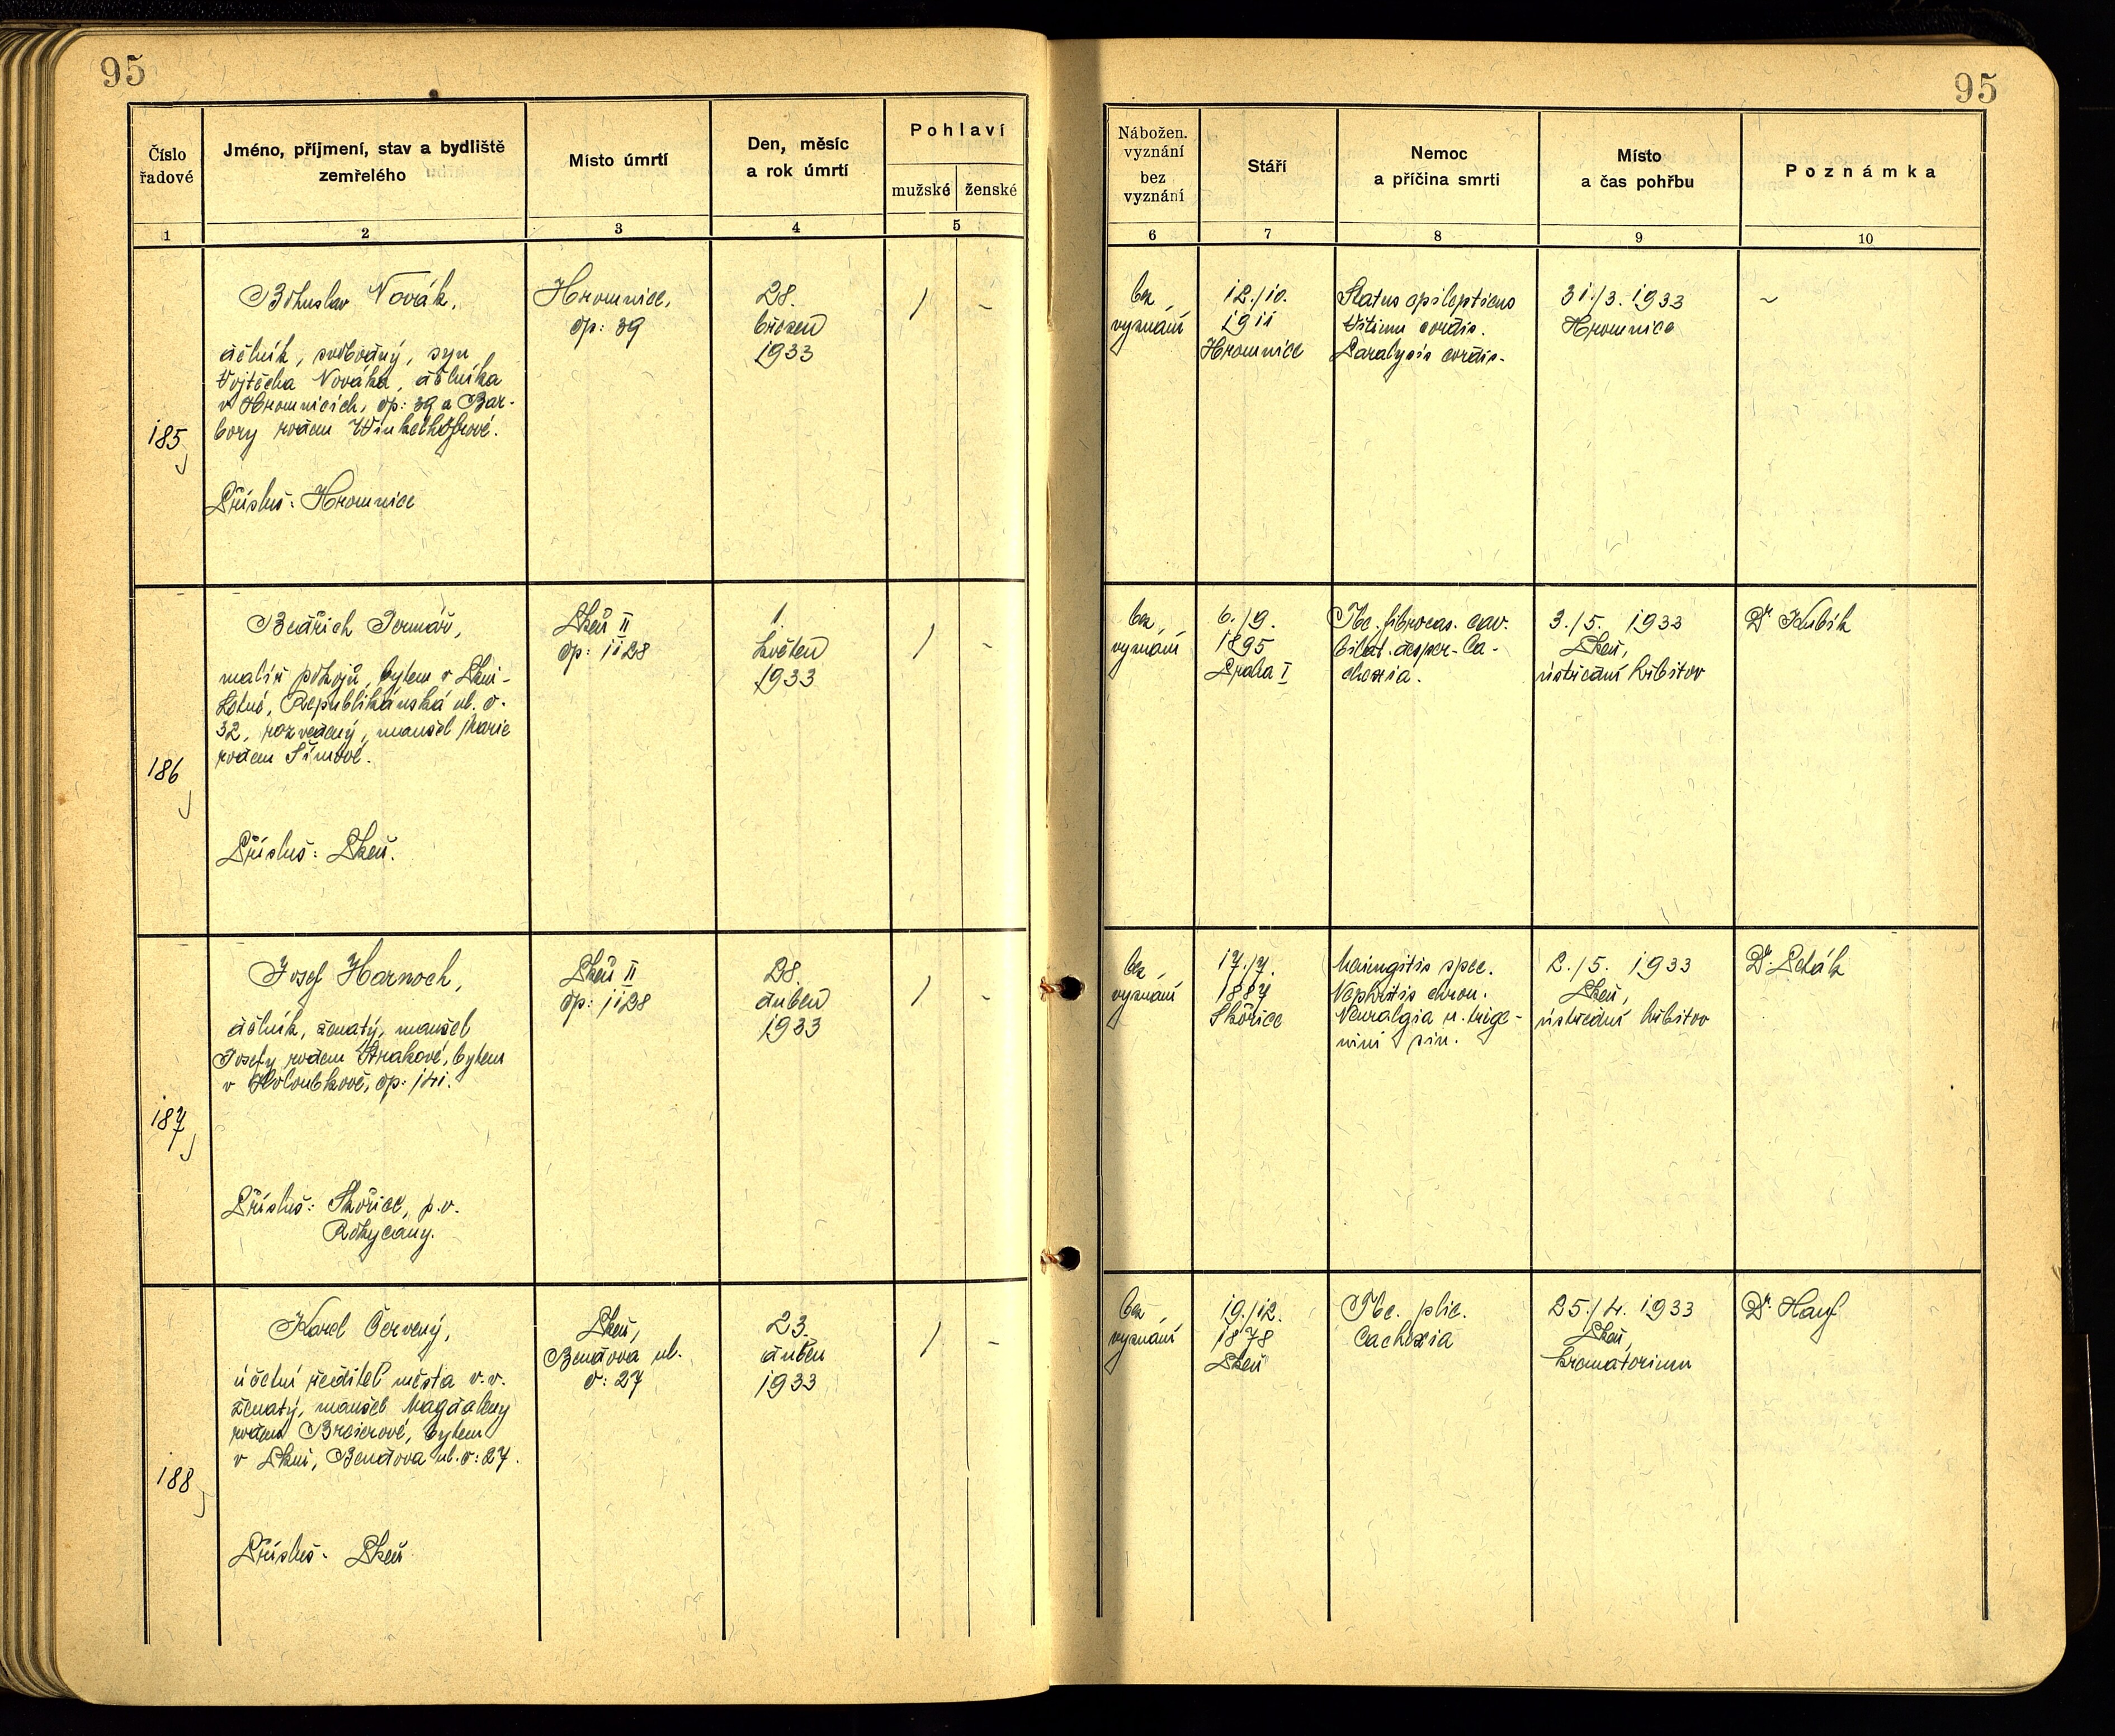 95
95
Číslo
řadové
Jméno, příjmení, stav a bydliště
zemřelého
Místo úmrtí
Den, měsíc
a rok úmrtí
Pohlaví
mužské
ženské
1
2
3
4
5
Nábožen.
vyznání
bez
vyznání
Stáří
Nemoc
a příčina smrti
Místo
a čas pohřbu
Poznámka
6
7
8
9
10
185
Bohuslav Novák,
dělník, svobodný, syn
Vojtěcha Nováka, dělníka
v Hromnicích, čp: 39 a Bar-
bory rodem
Přísluš: Hromnice
Hromnice,
čp: 39
28.
březen
1933
/
-
bez
vyznání
12./10.
1911
Hromnice
Status epilepticus
Vitium cordis.
Paralysis cordis.
31./3. 1933
Hromnice
~
186
Bedřich Germář,
malíř pokojů, bytem v Plzni-
Letné, Republikánská ul. č.
32, rozvedený, manžel Marie
rodem Šímové.
Přísluš: Plzeň.
Plzeň II
čp: 1128
1.
květen
1933
/
-
bez
vyznání
6./9.
1895
Praha I
Tbc. fibrocas. cav.
bilat. desper. Ca-
chexia.
3./5. 1933
Plzeň,
ústřední hřbitov
Dr Kubík
187
Josef Harnoch,
dělník, ženatý, manžel
Josefy rodem Strakové, bytem
v Holoubkově, čp: 141.
Přísluš: Skořice, p.v.
Rokycany.
Plzeň II
čp: 1128
28.
duben
1933
/
-
bez
vyznání
17./7.
1887
Skořice
Meningitis spec.
Nephritis chron.
Neuralgia n. trige-
mini sin.
2./5. 1933
Plzeň,
ústřední hřbitov
Dr
188
Karel Červený,
účetní ředitel města v.v.
ženatý, manžel Magdaleny
rodem Breierové, bytem
v Plzni, Bendova ul. č: 27.
Přísluš. Plzeň
Plzeň,
Bendova ul.
č: 27
23.
duben
1933
/
-
bez
vyznání
19./12.
1878
Plzeň
Tbc. plic.
Cachexia
25./4. 1933
Plzeň,
krematorium
Dr. Hanf